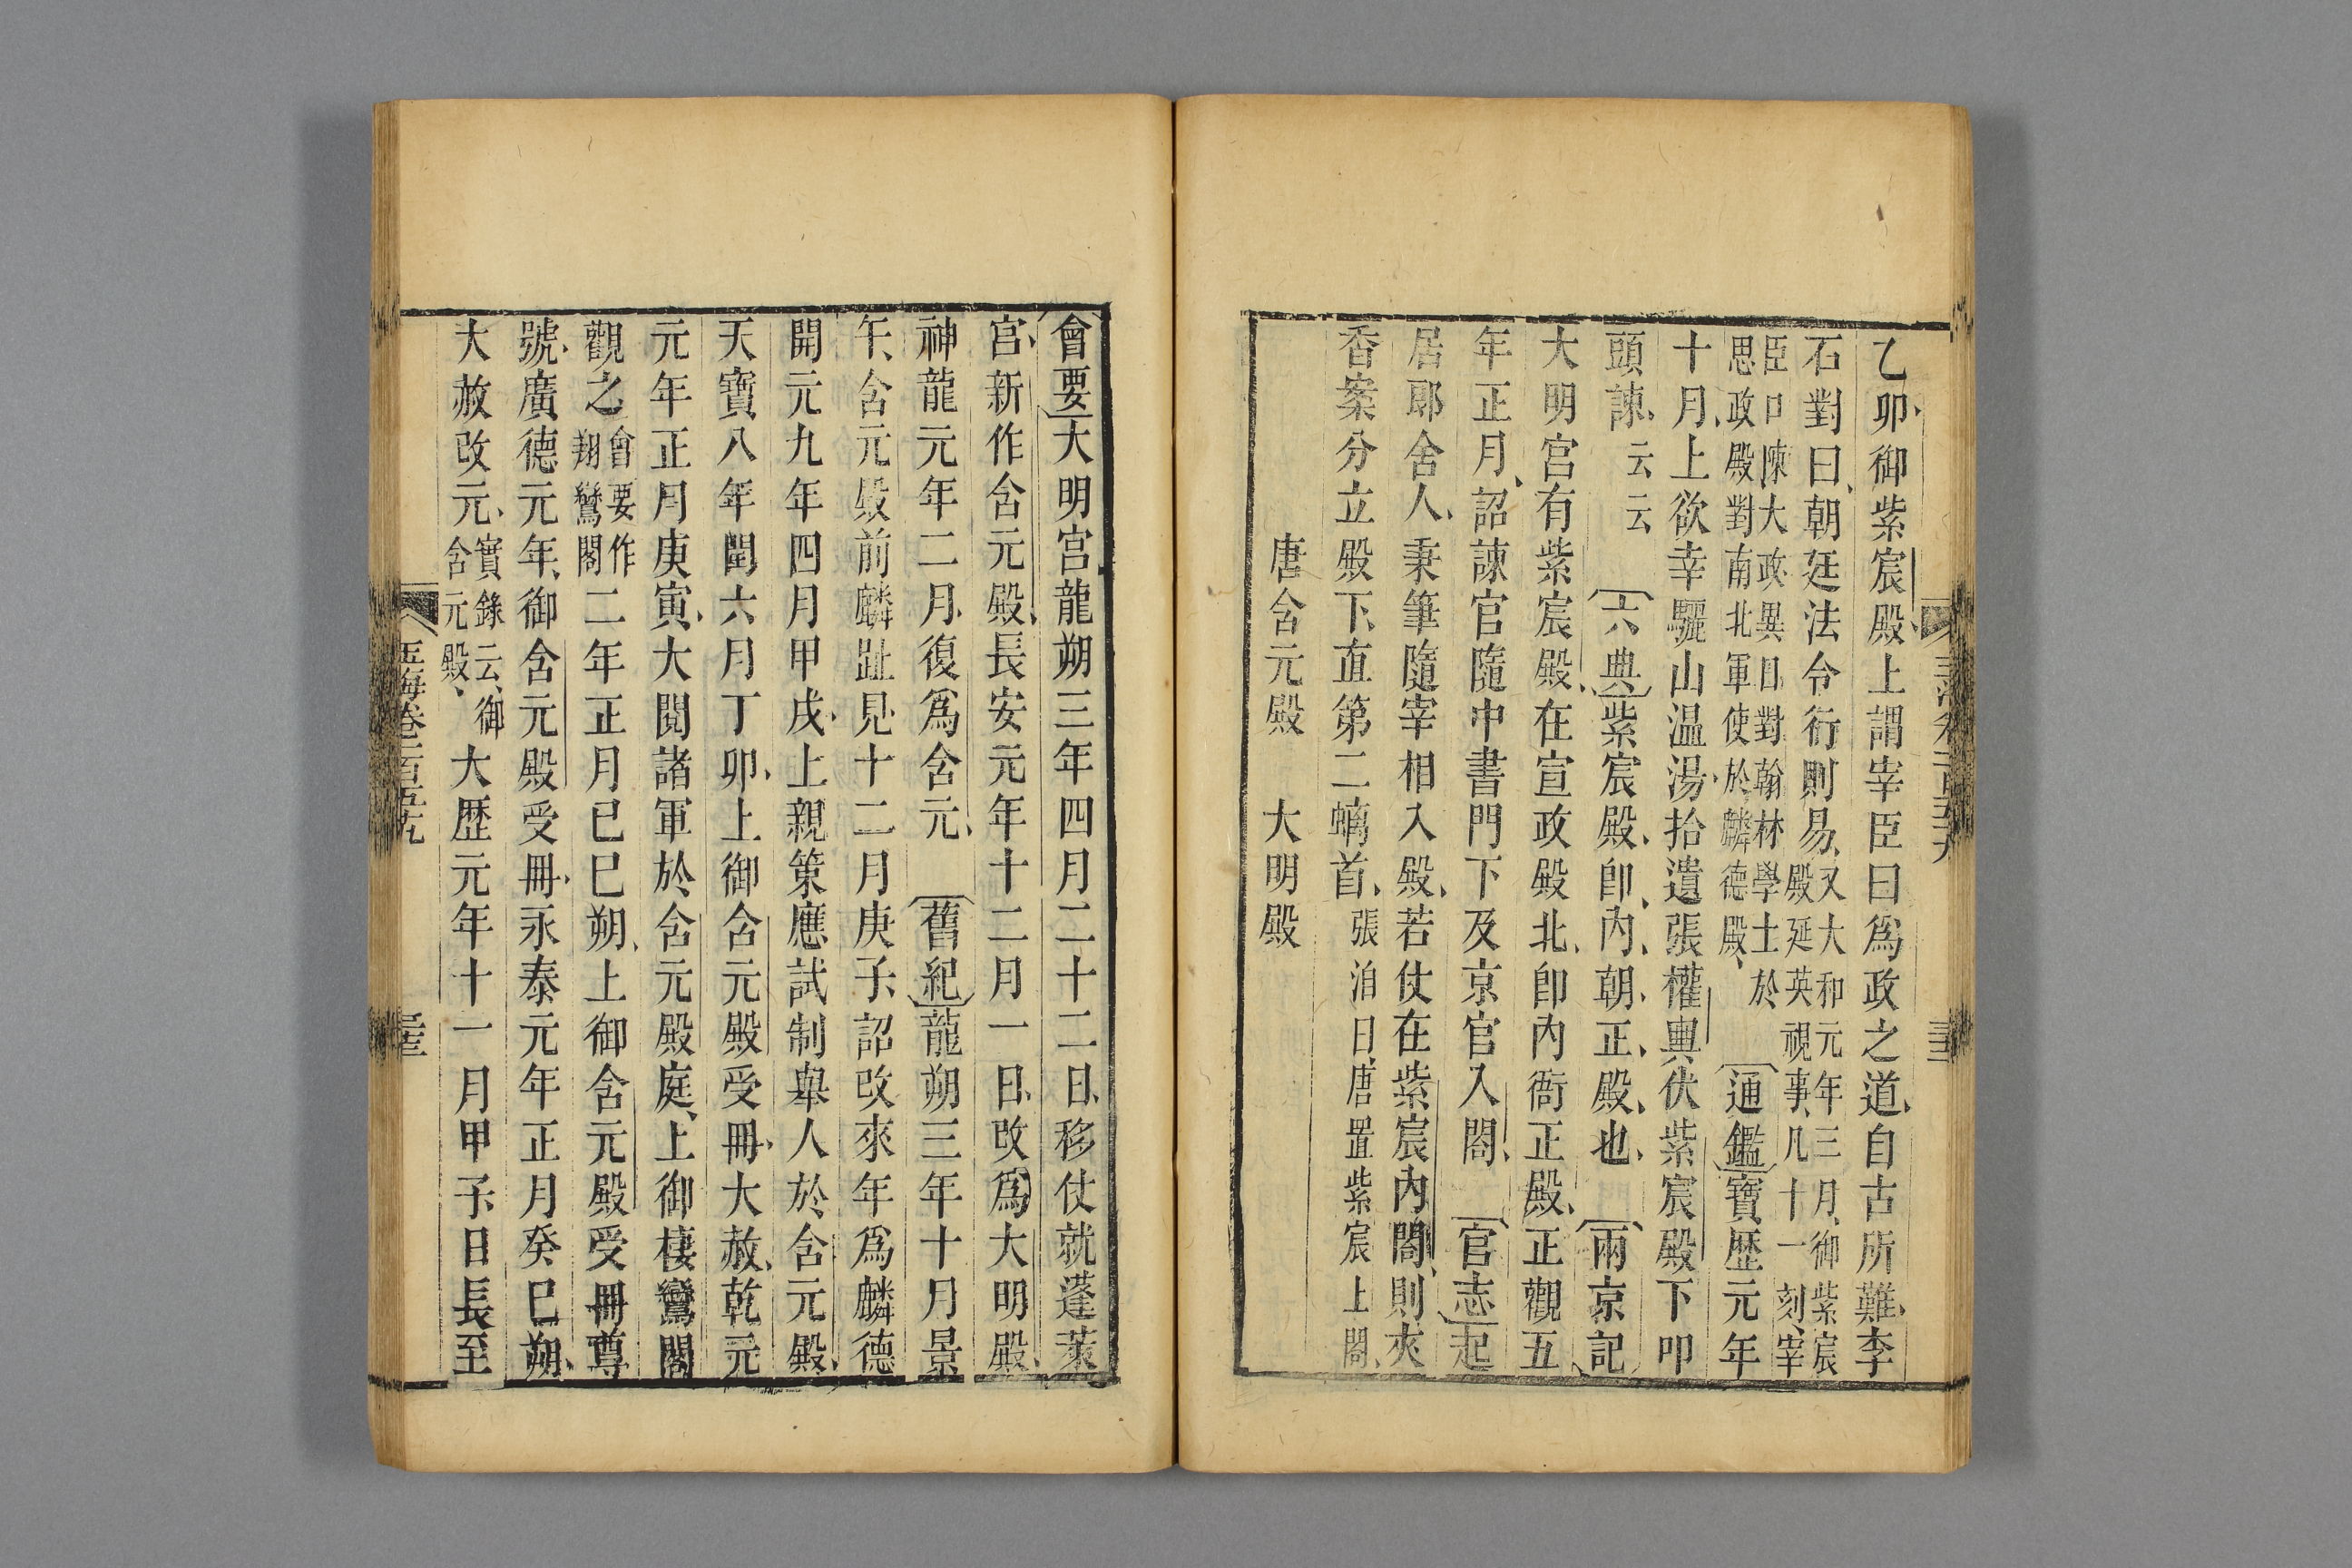 乙卯御紫宸殿上謂宰臣曰為政之道自古所難李
石對曰朝廷法令行則易又大和元年三月御紫宸
殿延英視事凡十一刻宰
臣口陳大政異日對翰林學士於
思政殿對南北軍使於麟德殿
通鑑寶歷元年
十月上欲幸驪山温湯拾遺張權輿伏紫宸殿下叩
頭諫云云
六典紫宸殿即內朝正殿也
兩京記
大明宮有紫宸殿在宣政殿北即內衙正殿正觀五
年正月詔諫官隨中書門下及京官入閤
官志起
居郎舍人秉筆隨宰相入殿若仗在紫宸內閤則夾
香案分立殿下直第二螭首張洎曰唐置紫宸上閤
唐含元殿 大明殿
會要大明宮龍朔三年四月二十二日移仗就蓬萊
宮新作含元殿長安元年十二月一日改為大明殿
神龍元年二月復為含元
舊紀龍朔三年十月景
午含元殿前麟趾見十二月庚子詔改來年為麟德
開元九年四月甲戌上親策應試制舉人於含元殿
天寶八年閏六月丁卯上御含元殿受冊大赦乾元
元年正月庚寅大閱諸軍於含元殿庭上御棲鸞閣
觀之會要作
翔鸞閣
二年正月已巳朔上御含元殿受冊尊
號廣德元年御含元殿受冊永泰元年正月癸巳朔
大赦改元實錄云御
含元殿
大歷元年十一月甲子日長至
玉海卷一百五十九